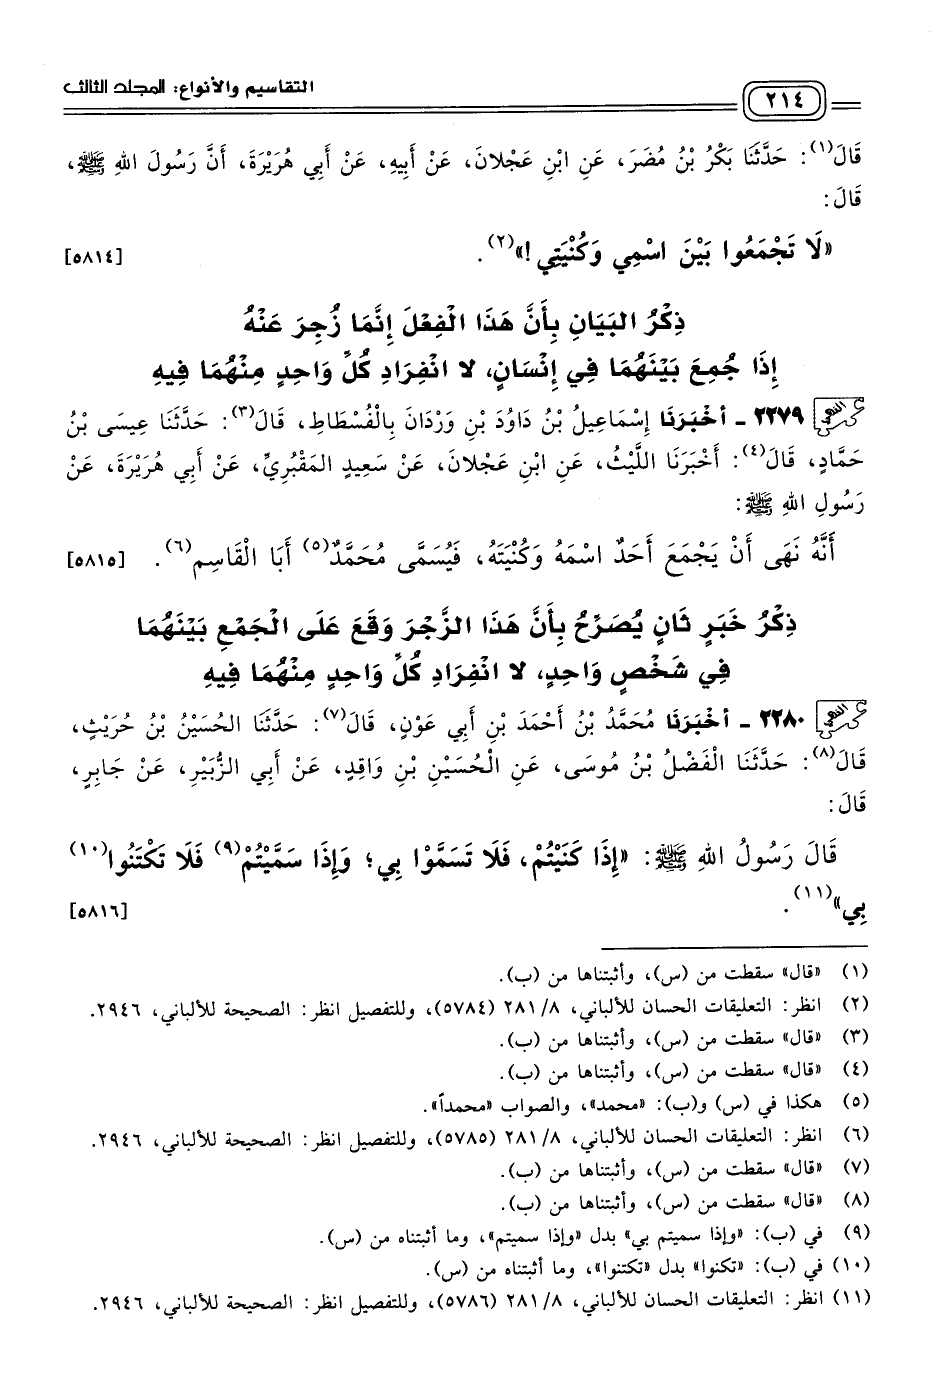 التقاسيم والأنواع: المجلد الثالث
٢١٤
قَالَ(١): حَدَّثَنَا بَكْرُ بْنُ مُضَرَ، عَنِ ابْنِ عَجْلانَ، عَنْ أَبِيهِ، عَنْ أَبِي هُرَيْرَةَ، أَنَّ رَسُولَ اللهِ ﷺ،
قَالَ:
«لَا تَجْمَعُوا بَيْنَ اسْمِي وَكُنْيَتِي!»(٢). [٥٨١٤]
ذِكْرُ البَيَانِ بِأَنَّ هَذَا الْفِعْلَ إِنَّمَا زُجِرَ عَنْهُ
إِذَا جُمِعَ بَيْنَهُمَا فِي إِنْسَانٍ، لا انْفِرَادِ كُلِّ وَاحِدٍ مِنْهُمَا فِيهِ
٢٢٧٩ - أَخْبَرَنَا إِسْمَاعِيلُ بْنُ دَاوُدَ بْنِ وَرْدَانَ بِالْفُسْطَاطِ، قَالَ(٣): حَدَّثَنَا عِيسَى بْنُ
حَمَّادٍ، قَالَ(٤): أَخْبَرَنَا اللَّيْثُ، عَنِ ابْنِ عَجْلانَ، عَنْ سَعِيدٍ المَقْبُرِيِّ، عَنْ أَبِي هُرَيْرَةَ، عَنْ
رَسُولِ اللهِ ﷺ:
أَنَّهُ نَهَى أَنْ يَجْمَعَ أَحَدٌ اسْمَهُ وَكُنْيَتَهُ، فَيُسَمَّى مُحَمَّدٌ(٥) أَبَا الْقَاسِمِ(٦). [٥٨١٥]
ذِكْرُ خَبَرٍ ثَانٍ يُصَرِّحُ بِأَنَّ هَذَا الزَّجْرَ وَقَعَ عَلَى الْجَمْعِ بَيْنَهُمَا
فِي شَخْصٍ وَاحِدٍ، لا انْفِرَادِ كُلِّ وَاحِدٍ مِنْهُمَا فِيهِ
٢٢٨٠ - أَخْبَرَنَا مُحَمَّدُ بْنُ أَحْمَدَ بْنِ أَبِي عَوْنٍ، قَالَ(٧): حَدَّثَنَا الحُسَيْنُ بْنُ حُرَيْثٍ،
قَالَ(٨): حَدَّثَنَا الْفَضْلُ بْنُ مُوسَى، عَنِ الْحُسَيْنِ بْنِ وَاقِدٍ، عَنْ أَبِي الزُّبَيْرِ، عَنْ جَابِرٍ،
قَالَ:
قَالَ رَسُولُ اللهِ ﷺ: «إِذَا كَنَيْتُمْ، فَلَا تَسَمَّوْا بِي؛ وَإِذَا سَمَّيْتُمْ(٩) فَلَا تَكْتَنُوا(١٠)
بِي»(١١). [٥٨١٦]
(١) «قال» سقطت من (س)، وأثبتناها من (ب).
(٢) انظر: التعليقات الحسان للألباني، ٨/ ٢٨١ (٥٧٨٤)، وللتفصيل انظر: الصحيحة للألباني، ٢٩٤٦.
(٣) «قال» سقطت من (س)، وأثبتناها من (ب).
(٤) «قال» سقطت من (س)، وأثبتناها من (ب).
(٥) هكذا في (س) و(ب): «محمد»، والصواب «محمداً».
(٦) انظر: التعليقات الحسان للألباني، ٨/ ٢٨١ (٥٧٨٥)، وللتفصيل انظر: الصحيحة للألباني، ٢٩٤٦.
(٧) «قال» سقطت من (س)، وأثبتناها من (ب).
(٨) «قال» سقطت من (س)، وأثبتناها من (ب).
(٩) في (ب): «وإذا سميتم بي» بدل «وإذا سميتم»، وما أثبتناه من (س).
(١٠) في (ب): «تكنوا» بدل «تكتنوا»، وما أثبتناه من (س).
(١١) انظر: التعليقات الحسان للألباني، ٨/ ٢٨١ (٥٧٨٦)، وللتفصيل انظر: الصحيحة للألباني، ٢٩٤٦.